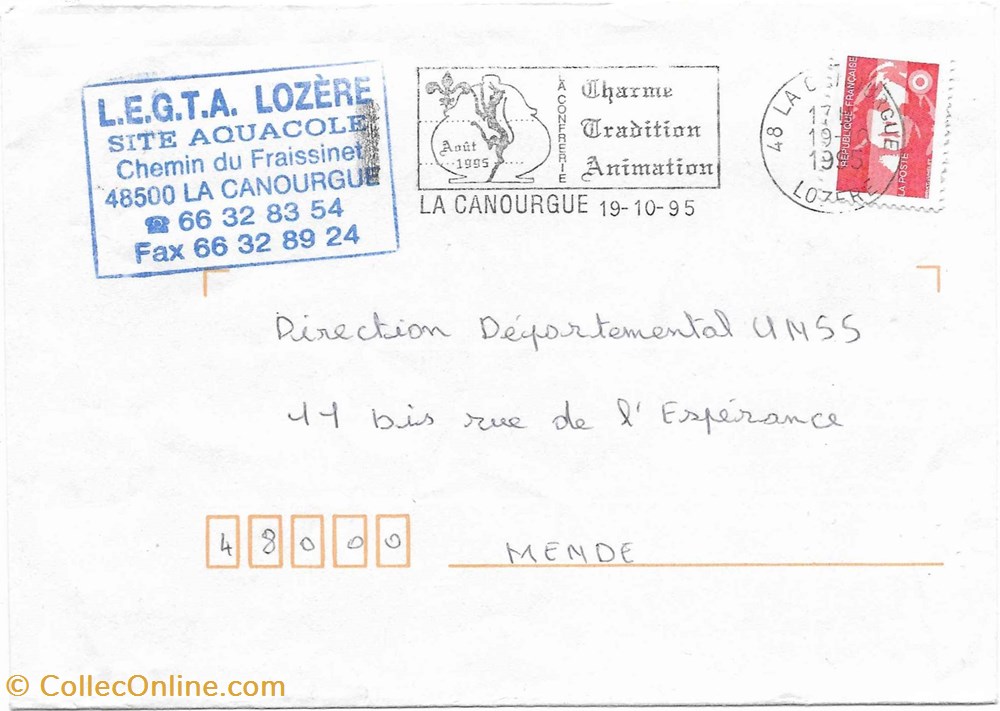 L.E.G.T.A. LOZÈRE
SITE AQUACOLE
Chemin du Fraissinet
48500 LA CANOURGUE
☎ 66 32 83 54
Fax 66 32 89 24
Août
1995
LA CONFRERIE
Charme
Tradition
Animation
LA CANOURGUE 19-10-95
48 LA
LOZERE
RÉPUBLIQUE FRANÇAISE
LA POSTE
Direction Départemental UNSS
11 bis rue de l'Espérance
48000
MENDE
© CollecOnline.com